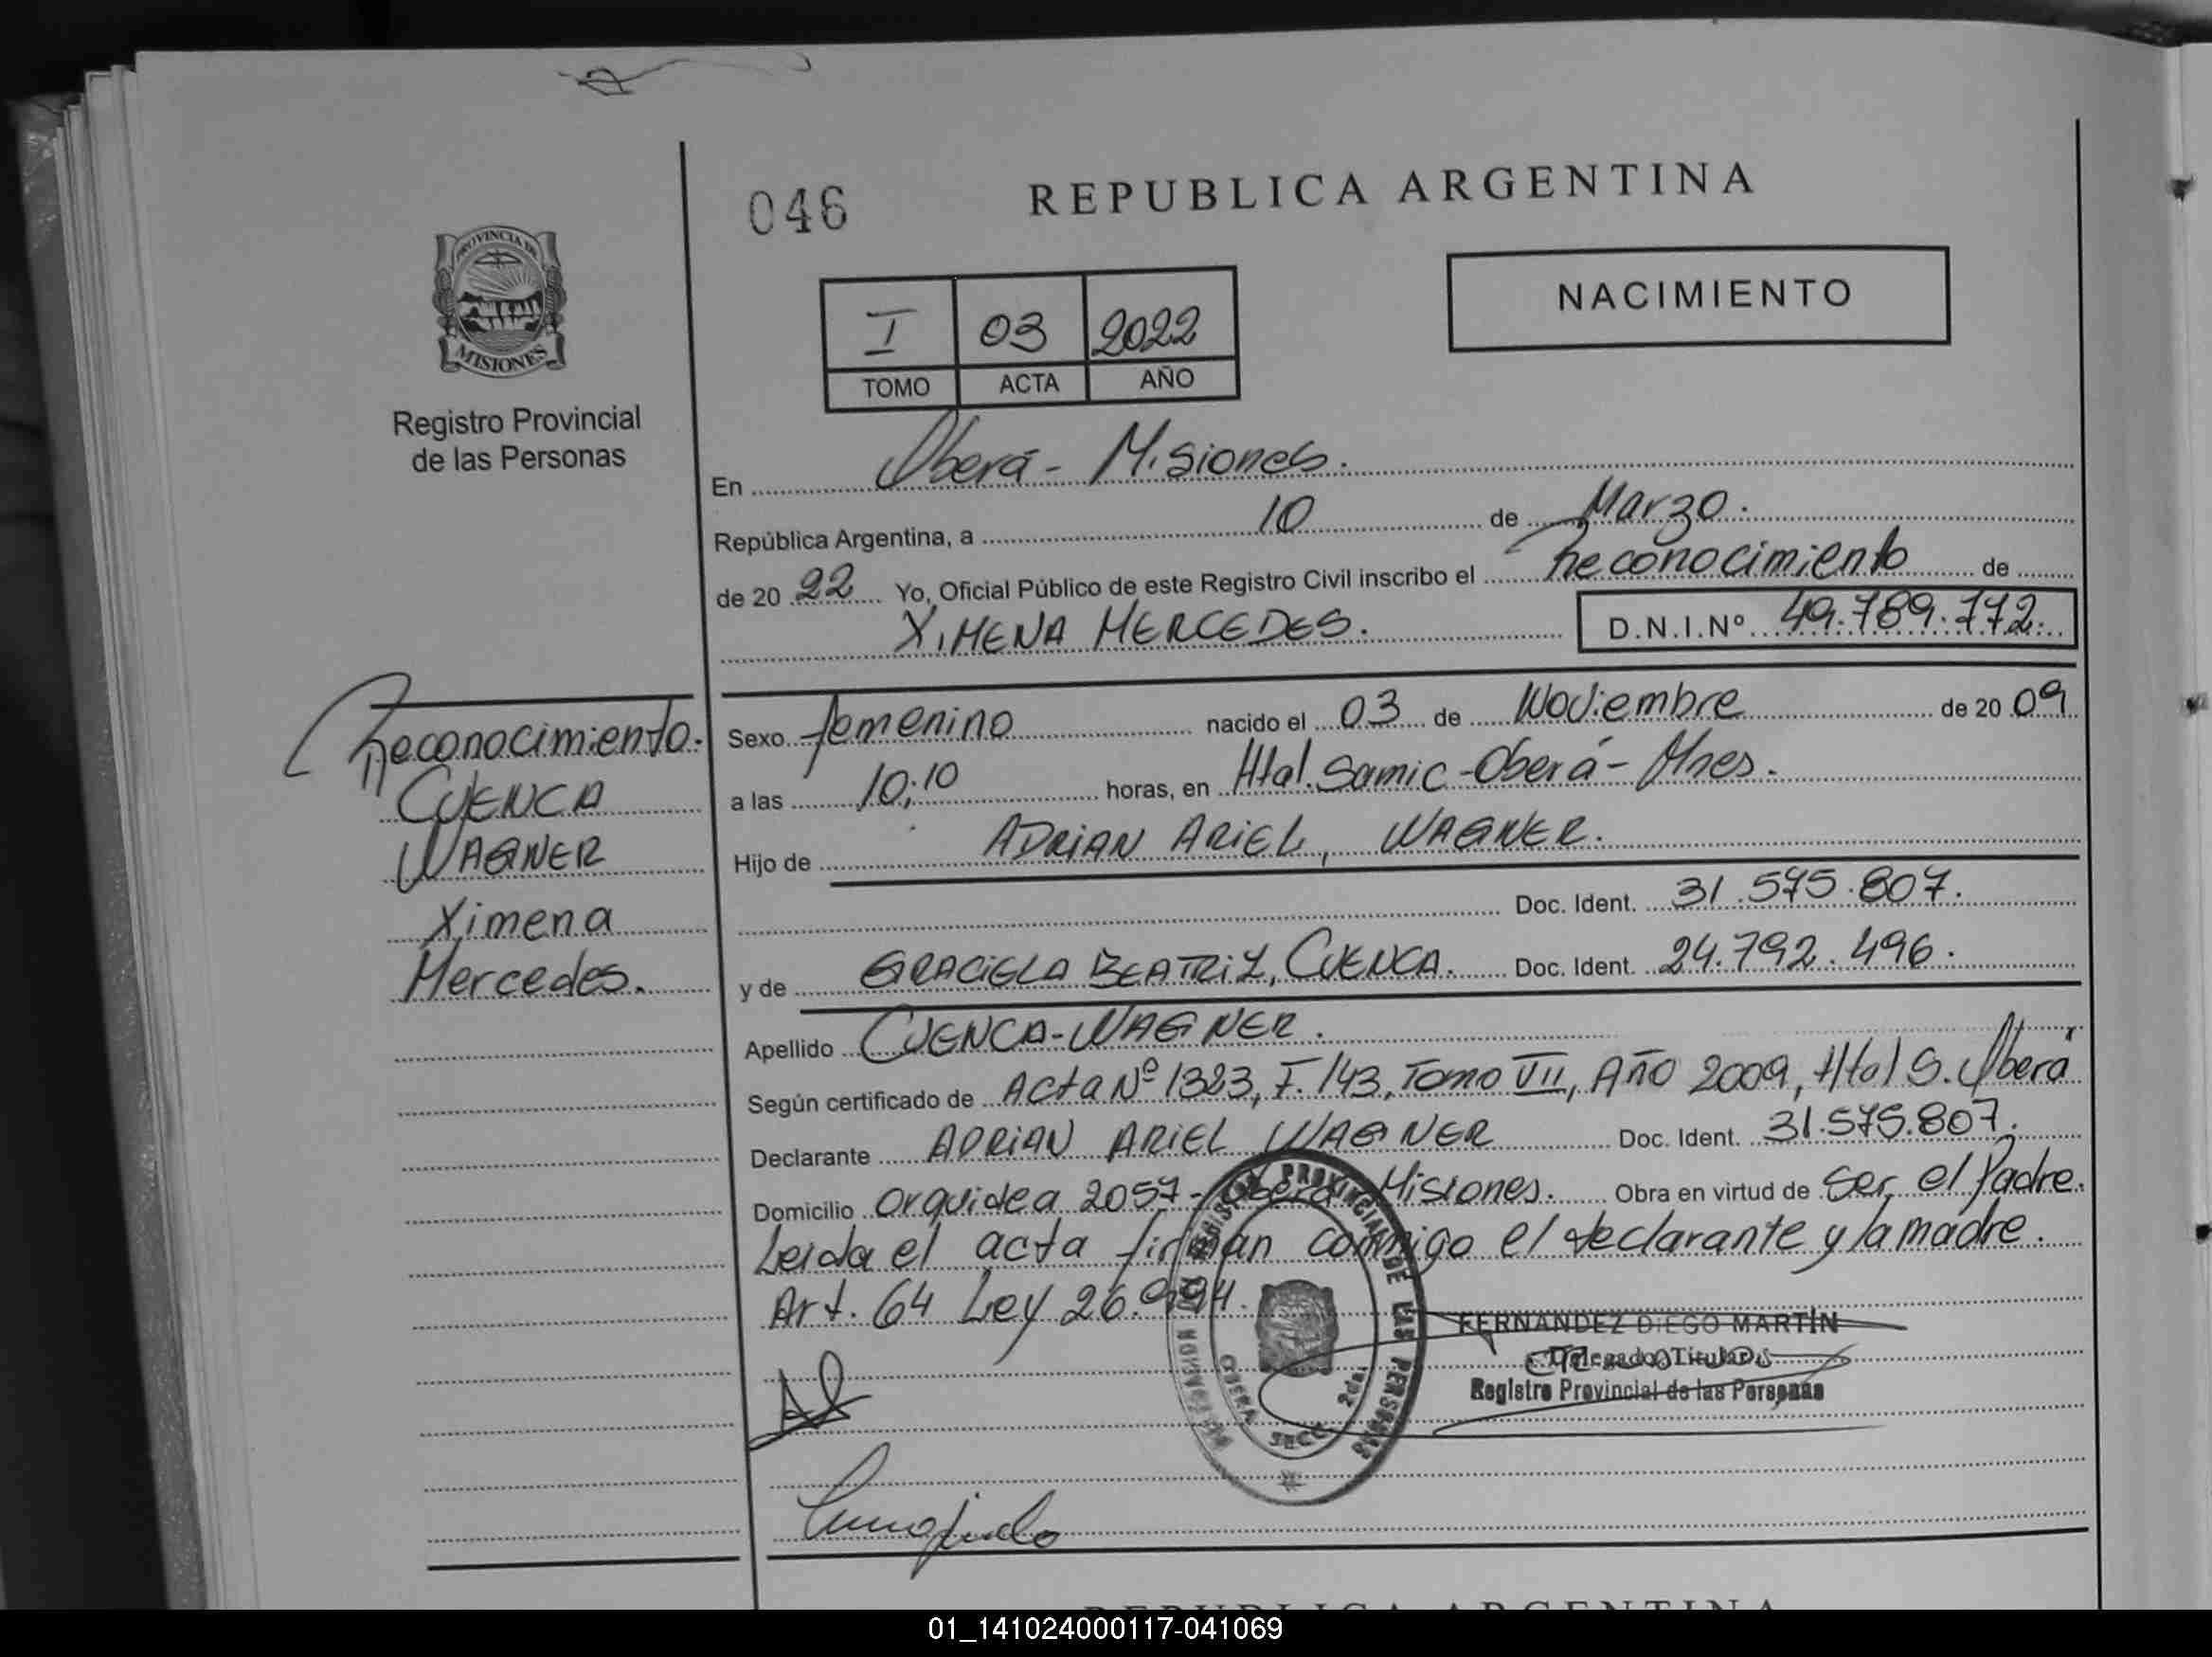 046
REPUBLICA ARGENTINA
PROVINCIA DE
MISIONES
Registro Provincial
de las Personas
I 03 2022
TOMO ACTA AÑO
NACIMIENTO
En Oberá - Misiones.
República Argentina, a 10 de Marzo.
de 20 22 Yo, Oficial Público de este Registro Civil inscribo el Reconocimiento de
XIMENA MERCEDES. D.N.I.Nº 49.789.772.
Reconocimiento.
CUENCA
WAGNER
Ximena
Mercedes.
Sexo femenino nacido el 03 de Noviembre de 20 09
a las 10:10 horas, en Htal. Samic - Oberá - Mnes.
Hijo de ADRIAN ARIEL, WAGNER.
Doc. Ident. 31.575.807.
y de GRACIELA BEATRIZ, CUENCA. Doc. Ident. 24.792.496.
Apellido CUENCA-WAGNER.
Según certificado de Acta Nº 1323, F. 143, Tomo VII, Año 2009, Htal S. Oberá
Declarante ADRIAN ARIEL WAGNER Doc. Ident. 31.575.807.
Domicilio Orquidea 2057 - Oberá Misiones. Obra en virtud de ser el Padre.
Leida el acta firman conmigo el declarante y la madre.
Art. 64 Ley 26.994.
PROVINCIAL DE LAS PERSONAS
OBERA SECC. 2da.
FERNANDEZ DIEGO MARTÍN
Delegado Titular
Registro Provincial de las Personas
REPUBLICA ARGENTINA
01_141024000117-041069